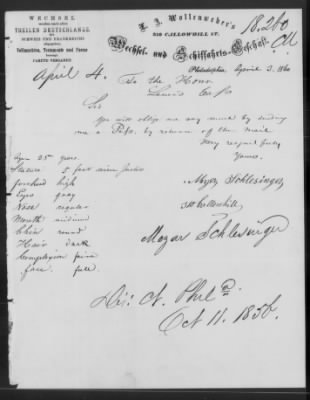 WECHSEL
THEILEN DEUTSCHLANDS,
DER
SCHWEIZ UND FRANKREICHS
Vollmachten, Testamente und Pässe
CARLTO VERLASSEN
L. J. Wollenweber's
310 CALLOWHILL ST.
Wechsel- und Schiffahrts-Geschäft
18.260
Philadelphia, April 3. 1860
April 4.
To the Honor.
Lewis Cass
Sir
You will oblige me very much by sending
me a Pass. by return of the Mail
Very respectfully
Yours.
Age 25 years.
Stature 5 feet nine Inches
forehead high
Eyes gray
Nose regular
Mouth medium
Chin round
Hair dark
Complexion faire
face full.
Meyer Schlesinger
310 Callowhill
Mayer Schlesinger
Dis. Ct. Phil a.
Oct 11. 1856.